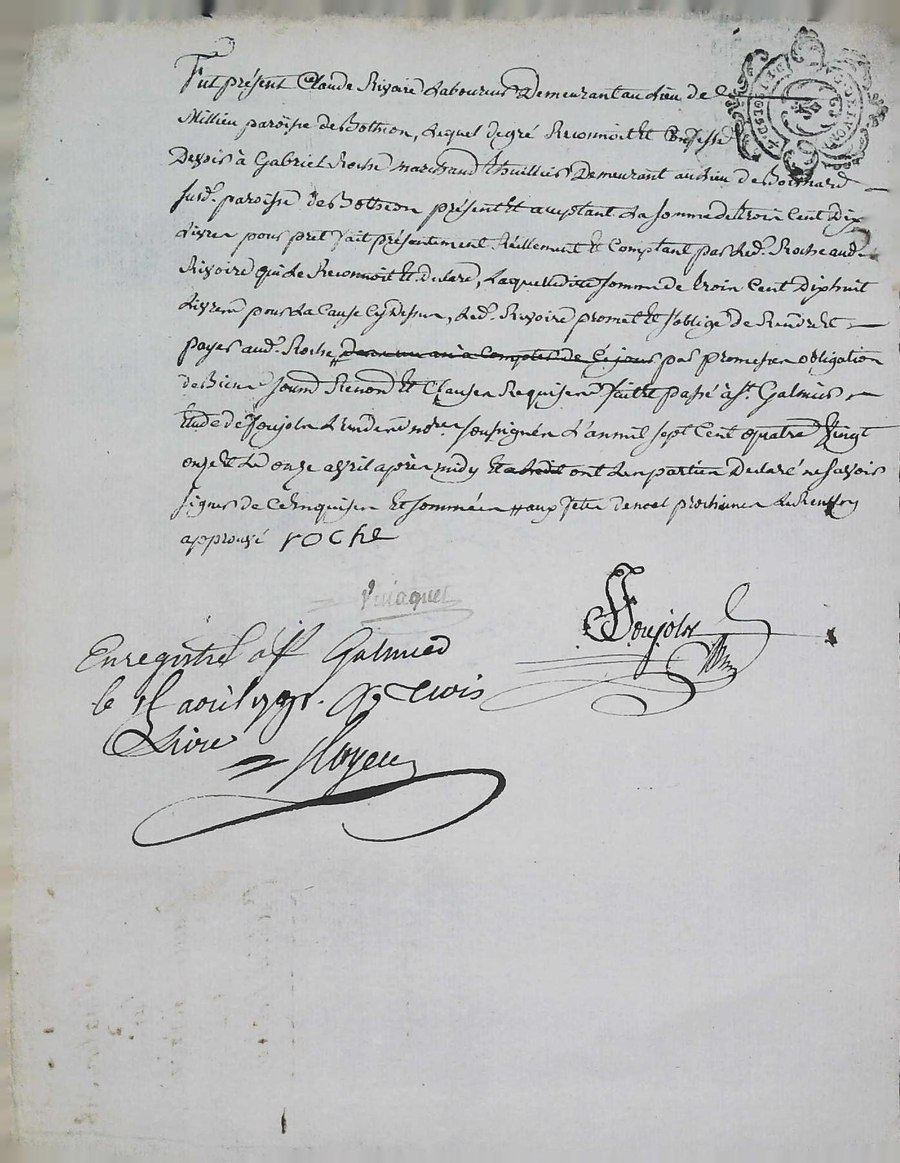 Fut présent Claude Rivoire Laboureur Demeurant au Lieu de
Millieu paroisse de Bothéon, Lequel degré Reconnoit Et Confesse
Devoir à Gabriel Roche marchand thuillier Demeurant au Lieu de
susd. paroisse de Bothéon présent Et aceptant La somme de trois Cent Dix
Livres pour pret fait présentement, Réellement Et Comptant par Led. Roche aud.
Rivoire qui Le Reconnoit Et declare, Laquelle ditte somme de trois Cent Dixhuit
Livres pour La Cause Cy Dessus, Led. Rivoire promet Et s'oblige de Rendre Et
payer aud. Roche dans un an à Compter de Ce jour par promesses obligation
de Biens soumd Renond Et Clauses Requises fait Et passé à St. Galmier
Etude de Soujols L'un des nores. soussignés L'an mil sept Cent quatre Vingt
onze Et Le onze avril après midy Et ont Les parties Declaré ne savoir
signer de Ce Enquises Et sommées aux fetes de noel prochaines
approuvé roche
Soujols
Enregistré à St Galmier
le avril 1791. Rç trois
Livres